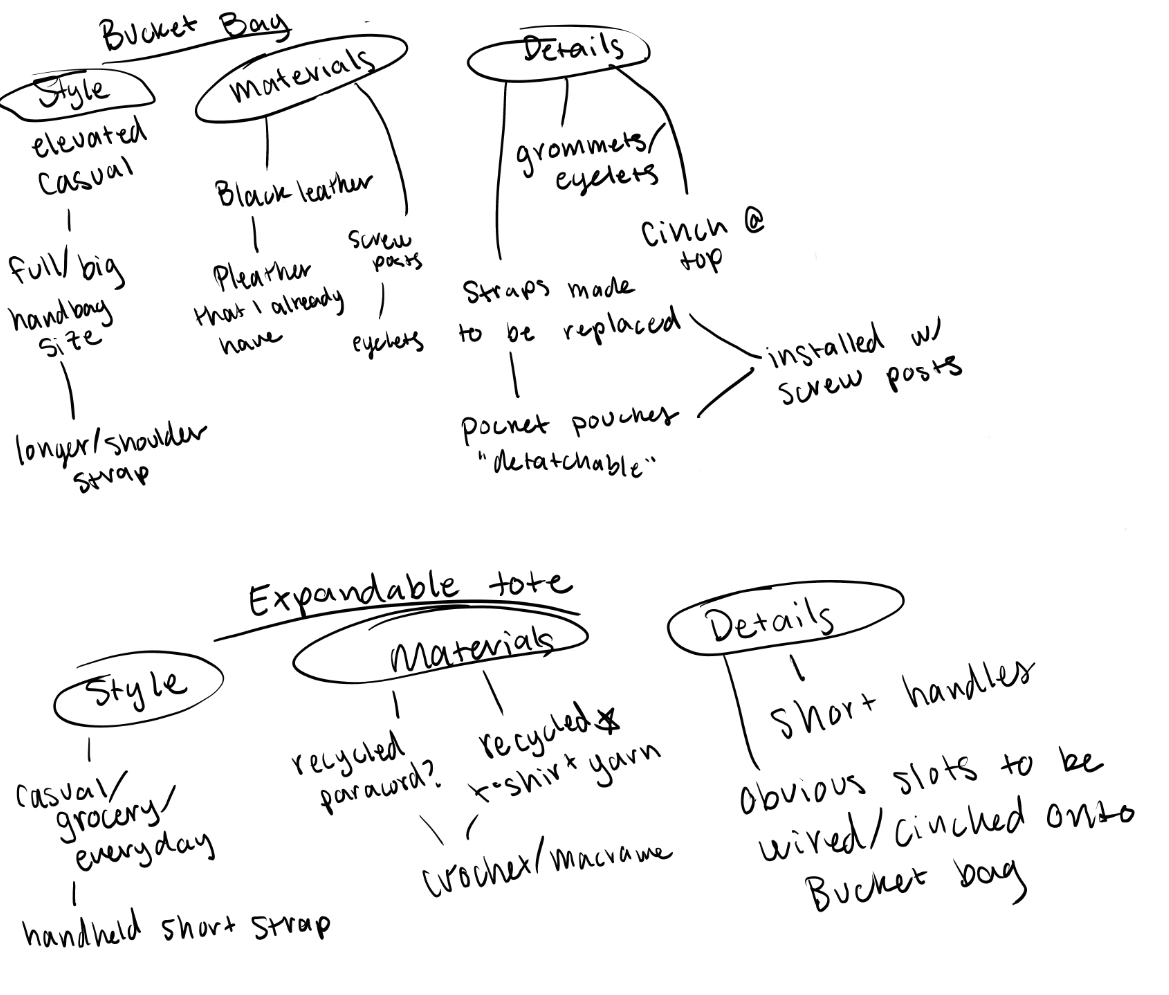 Bucket Bag
Style
elevated
casual
full/big
handbag
size
longer/shoulder
strap
Materials
Black leather
Pleather
that I already
have
screw
posts
eyelets
Details
grommets/
eyelets
Cinch @
top
Straps made
to be replaced
Pocket pouches
"detatchable"
installed w/
screw posts
Expandable tote
Style
casual/
grocery/
everyday
handheld short strap
Materials
recycled
paracord?
recycled
t-shirt yarn
crochet/macrame
Details
short handles
obvious slots to be
wired/cinched onto
Bucket bag